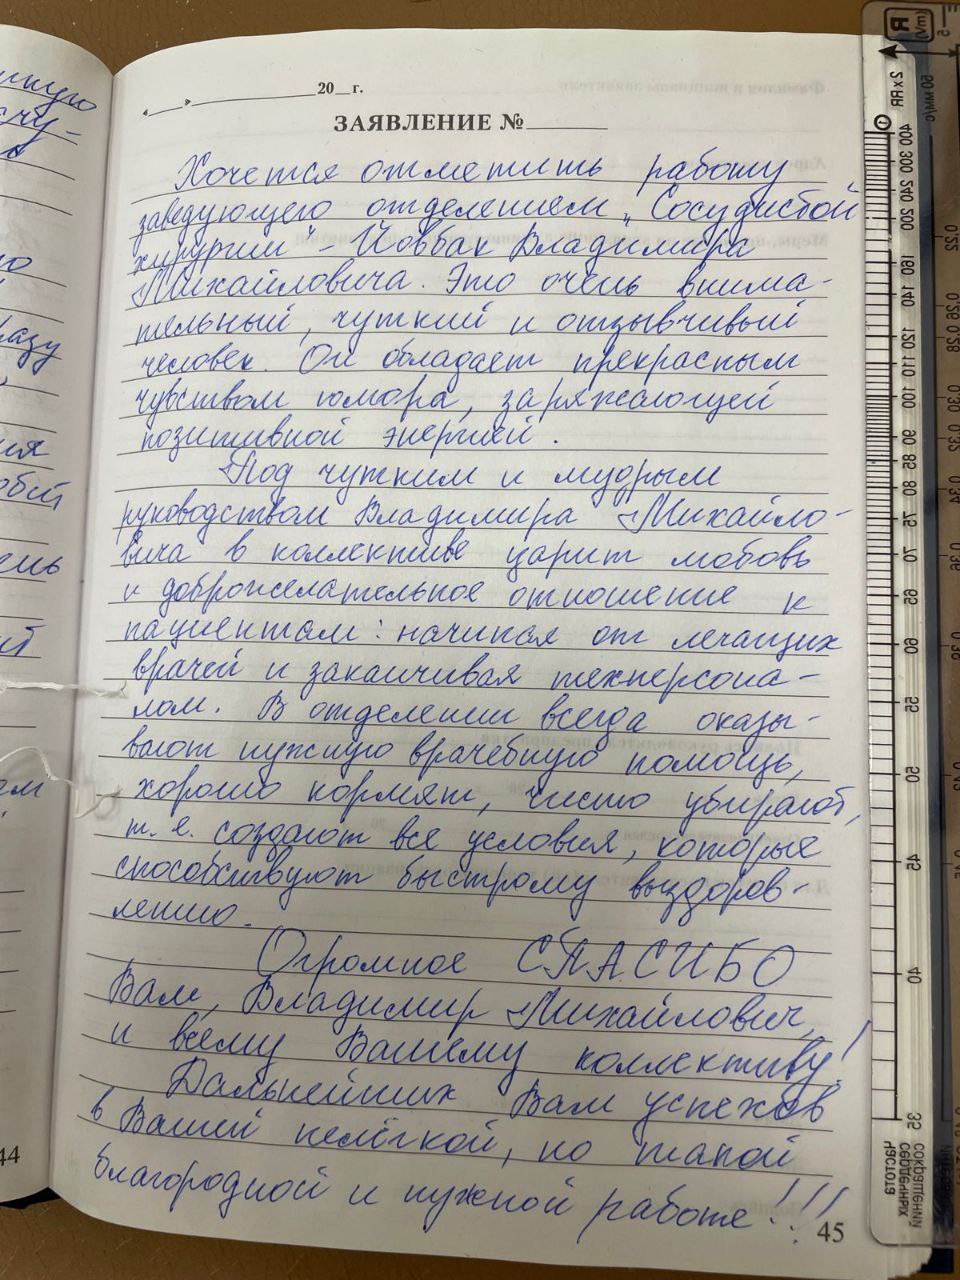 «____»____________20__г.
ЗАЯВЛЕНИЕ №________
Хочется отметить работу
заведующего отделением „Сосудистой
хирургии" – Йовбак Владимира
Михайловича. Это очень внима-
тельный, чуткий и отзывчивый
человек. Он обладает прекрасным
чувством юмора, заряжающей
позитивной энергией.
Под чутким и мудрым
руководством Владимира Михайло-
вича в коллективе царит любовь
и доброжелательное отношение к
пациентам: начиная от лечащих
врачей и заканчивая техперсона-
лом. В отделении всегда оказы-
вают нужную врачебную помощь,
хорошо кормят, чисто убирают,
т. е. создают все условия, которые
способствуют быстрому выздоров-
лению.
Огромное СПАСИБО
Вам, Владимир Михайлович,
и всему Вашему коллективу!
Дальнейших Вам успехов
в Вашей нелёгкой, но такой
благородной и нужной работе!!!
45
44